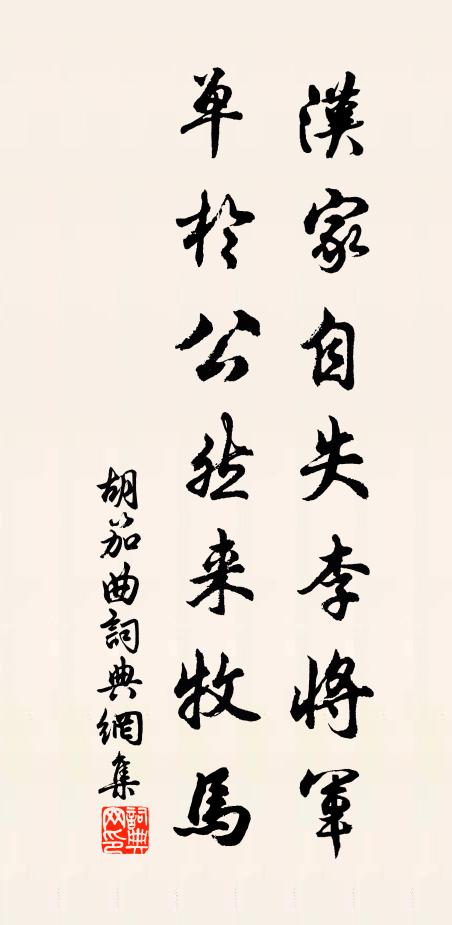 漢家自失李將軍
單於公然来牧馬
胡笳曲詞典網集
詞典網印